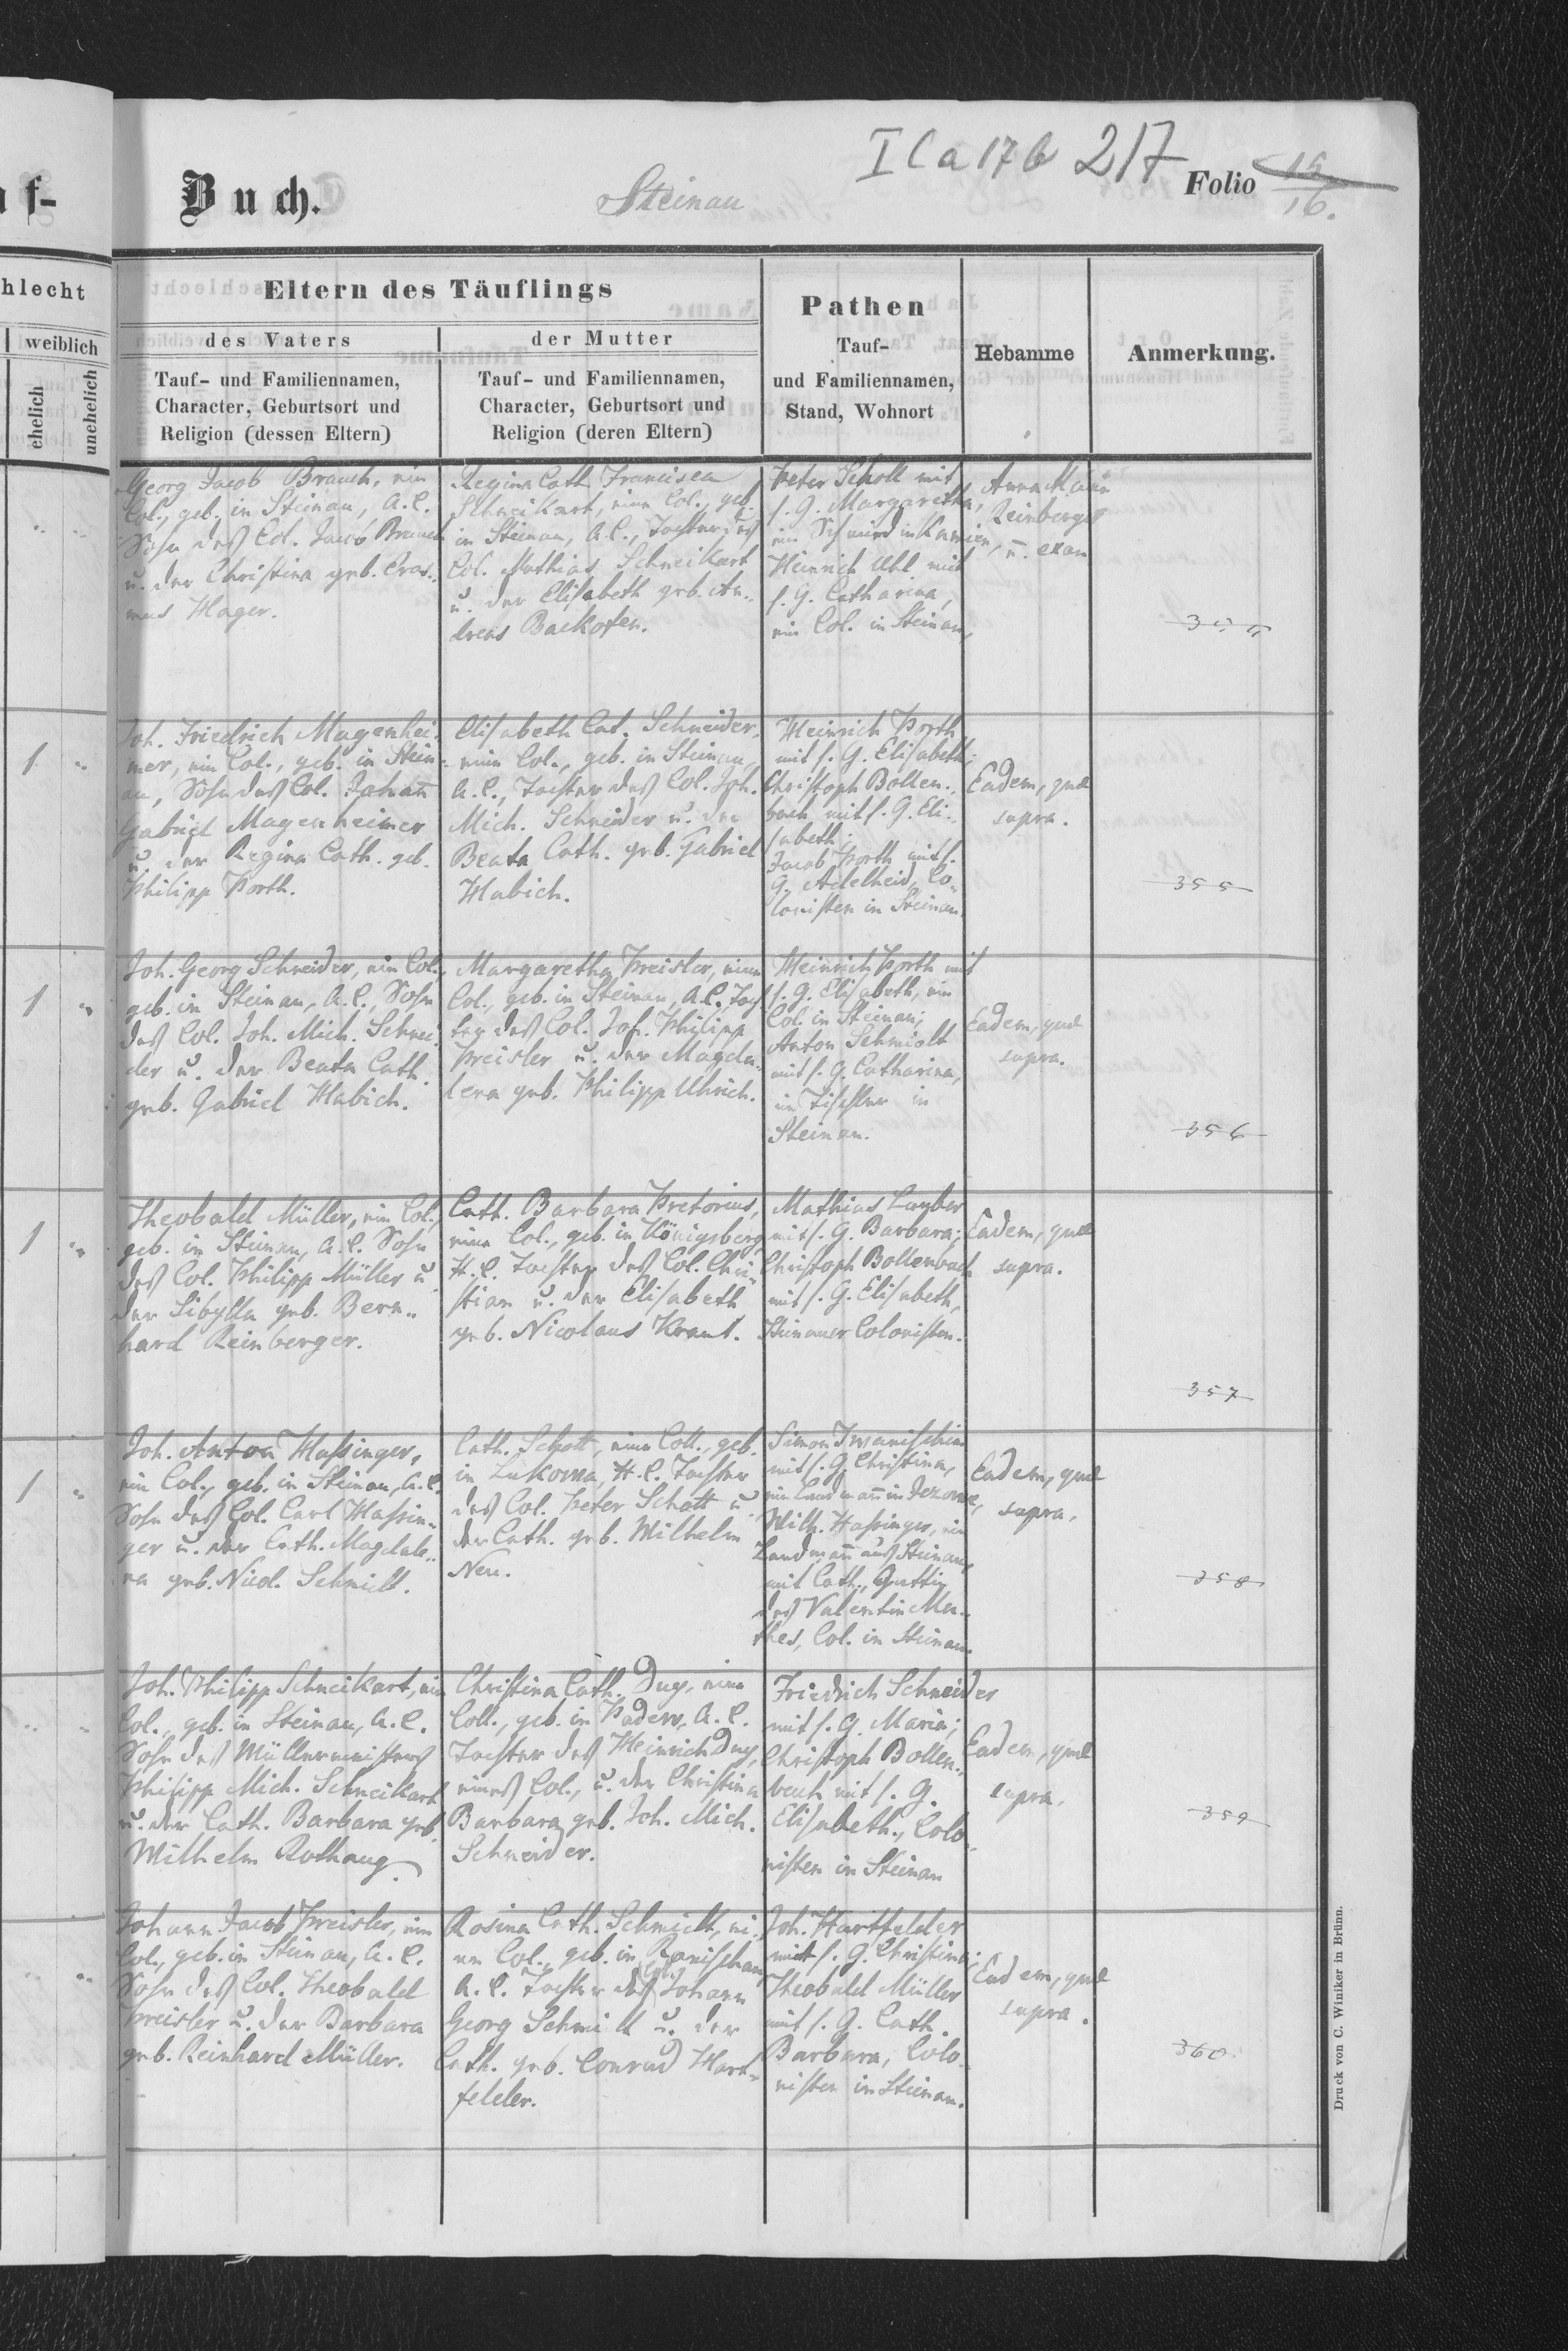 I C a 17 b 217
f-
Buch.
Steinau
Folio 15
16.
hlecht
weiblich
ehelich
unehelich
Eltern des Täuflings
des Vaters
Tauf- und Familiennamen,
Character, Geburtsort und
Religion (dessen Eltern)
der Mutter
Tauf- und Familiennamen,
Character, Geburtsort und
Religion (deren Eltern)
Pathen
Tauf-
und Familiennamen,
Stand, Wohnort
Hebamme
Anmerkung.
Georg Jacob Brauch, ein
Col., geb. in Steinau, A.C.
Sohn des Col. Jacob Brauch
u. der Christina geb. Eras-
mus Hager.
Regina Cath Francisca
Schneikart, eine Col., geb.
in Steinau, A.C., Tochter des
Col. Mathias Schneikart
u. der Elisabeth geb. An-
dreas Backofen.
Peter Scholl mit
s. G. Margaretha,
ein Schmied in Kamien,
Heinrich Uhl mit
s. G. Catharina,
ein Col. in Steinau,
Anna Maria
Reinberger
u. exam
1
Joh. Friedrich Magenhei-
mer, ein Col., geb. in Stein-
au, Sohn des Col. Johañ
Gabriel Magenheimer
u. der Regina Cath. geb.
Philipp Porth.
Elisabeth Cat. Schneider,
eine Col., geb. in Steinau,
A.C., Tochter des Col. Joh.
Mich. Schneider u. der
Beata Cath. geb. Gabriel
Habich.
Heinrich Porth
mit s. G. Elisabeth;
Christoph Bollen-
bach mit s. G. Eli-
sabeth.
Jacob Porth mit s.
G. Adelheid, Co-
lonisten in Steinau.
Eadem, quae
supra.
355
1
Joh. Georg Schneider, ein Col.
geb. in Steinau, A.C., Sohn
des Col. Joh. Mich. Schnei-
der u. der Beata Cath.
geb. Gabriel Habich.
Margaretha Preisler, eine
Col., geb. in Steinau, A.C., Toch-
ter des Col. Joh. Philipp
Preisler u. der Magda-
lena geb. Philipp Uhrich.
Heinrich Porth mit
s. G. Elisabeth, ein
Col. in Steinau;
Anton Schmidt
mit s. G. Catharina,
ein Tischler in
Steinau.
Eadem, quae
supra.
356
1
Theobald Müller, ein Col.,
geb. in Steinau, A.C. Sohn
des Col. Philipp Müller u.
der Sibylla geb. Bern-
hard Reinberger.
Cath. Barbara Pretorius,
eine Col., geb. in Königsberg
H.C. Tochter des Col. Chri-
stian u. der Elisabeth
geb. Nicolaus Kraut.
Mathias Lauber
mit s. G. Barbara;
Christoph Bollenbach
mit s. G. Elisabeth,
Steinauer Colonisten.
Eadem, quae
supra.
357
1
Joh. Anton Hassinger,
ein Col., geb. in Steinau, A.C.
Sohn des Col. Carl Hassin-
ger u. der Cath. Magdale-
na geb. Nicol. Schmidt.
Cath. Schott, eine Coll., geb.
in Lukowa, H.C. Tochter
des Col. Peter Schott u.
der Cath. geb. Wilhelm
Neu.
Simon Iwanischin
mit s. G. Christina,
ein Landmañ in Jezowe,
Wilh. Hassinger, ein
Landmañ aus Steinau,
mit Cath., Gattin
des Valentin Ma-
thes, Col. in Steinau.
Eadem, quae
supra.
358
Joh. Philipp Schneikart, ein
Col., geb. in Steinau, A.C.
Sohn des Müllermeisters
Philipp Mich. Schneikart
u. der Cath. Barbara geb.
Wilhelm Rothaug.
Christina Cath. Duy, eine
Coll., geb. in Padew, A.C.
Tochter des Heinrich Duy,
eines Col., u. der Christina
Barbara geb. Joh. Mich.
Schneider.
Friedrich Schneider
mit s. G. Maria;
Christoph Bollen-
bach mit s. G.
Elisabeth, Colo-
nisten in Steinau
Eadem, quae
supra.
359
Johann Jacob Preisler, ein
Col., geb. in Steinau, A.C.
Sohn des Col. Theobald
Preisler u. der Barbara
geb. Reinhard Müller.
Rosina Cath. Schmidt, ei-
ne Col., geb. in Ranischau,
A.C. Tochter des Col. Johann
Georg Schmidt u. der
Cath. geb. Conrad Hart-
felder.
Joh. Hartfelder
mit s. G. Christina;
Theobald Müller
mit s. G. Cath.
Barbara, Colo-
nisten in Steinau.
Eadem, quae
supra.
360.
Druck von C. Winiker in Brünn.